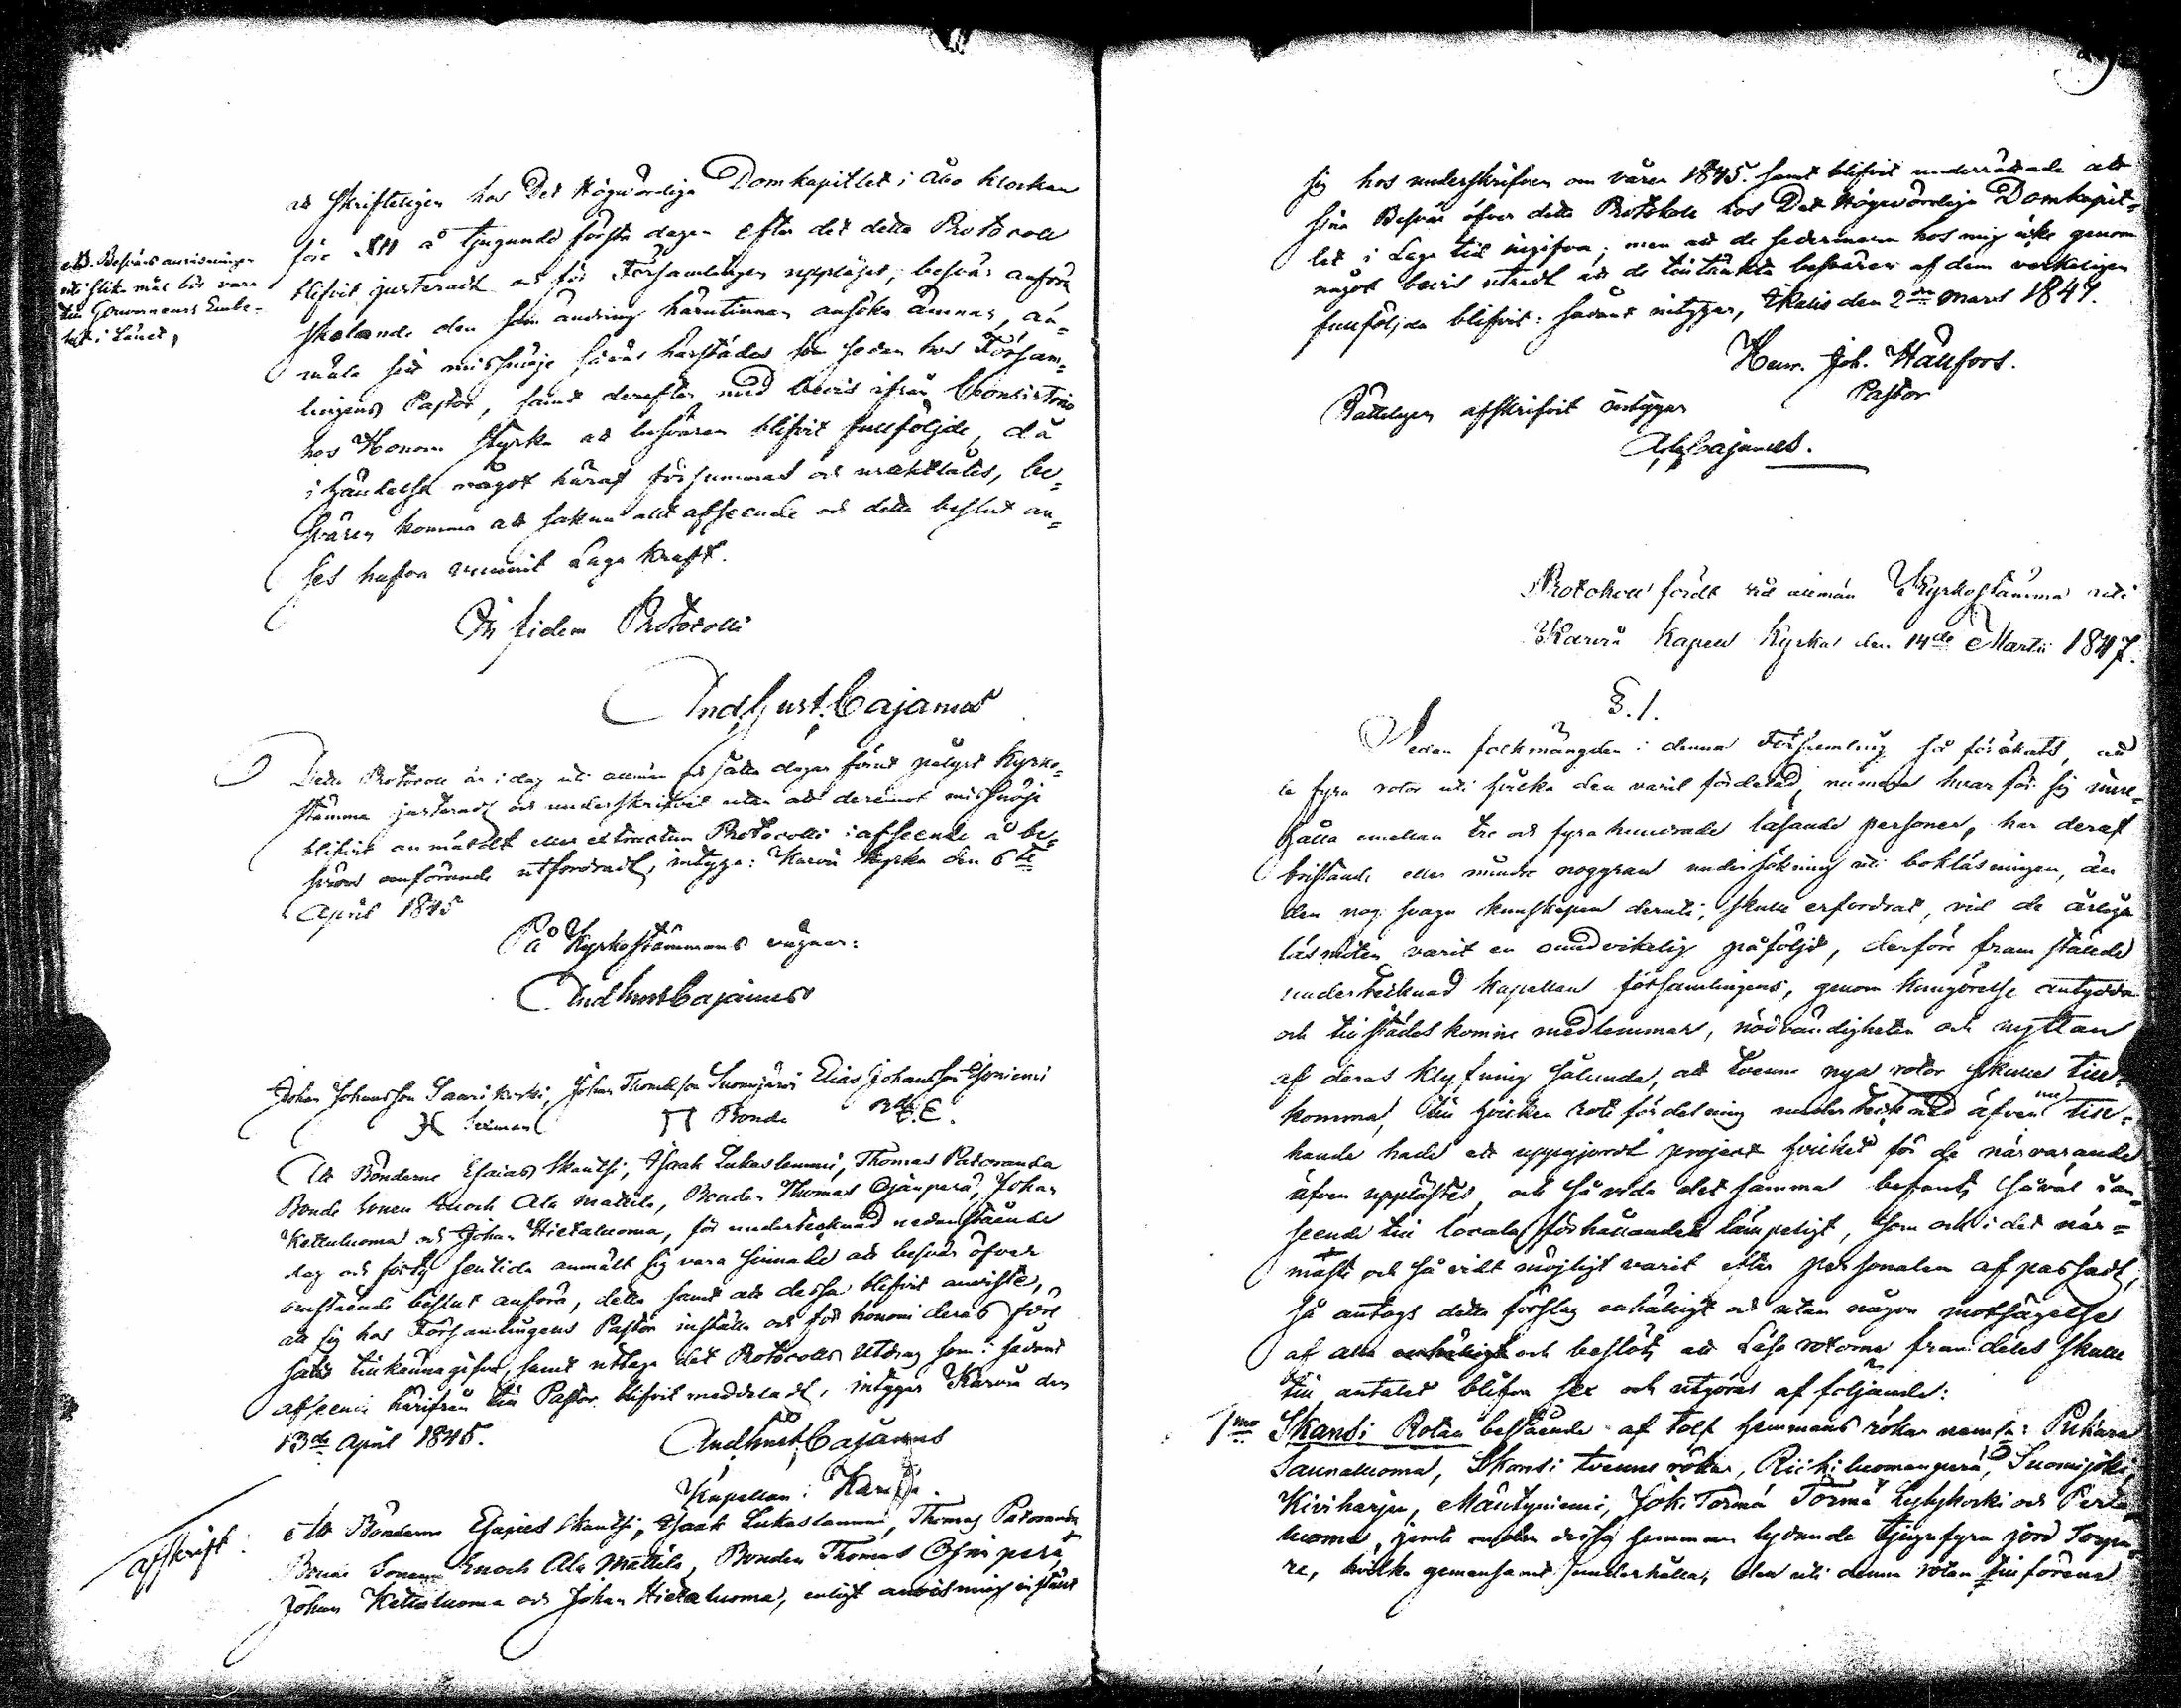 att skrifteligen hos Det Högwördiga Domkapitlet i Åbo klockan
före XII å tjugundeförsta dagen efter det detta Protocoll
blifvit justeradt och för Församlingen uppläset, besvär anföra
skolande den som ändring härutinnan ansöka ämnar, an-
mäla sitt missnöje såväl härstädes som sedan hos Försam-
lingens Pastor, samt derefter med bevis ifrån Consistorio
hos Honom styrka att besvären blifvit fullföljde, då
i händelse något häraf försummas och uraktlåtes, be-
svären komma att sakna allt afseende och detta beslut an-
ses hafva vunnit Laga kraft.
Besvärs anvisningen
uti slika mål bör vara
till Gouverneurs Embe-
tet i Länet,
In fidem Protocolli
And. Gust. Cajanus
Detta Protocoll är i dag uti allmän sålla dagar förut pålyst Kyrko-
stämma justeradt och underskrifvit utan att deremot missnöje
blifvit anmäldt eller extractum Protocolli i afseende å be-
svärs anförande utfordradt, intyga: Karvia Kyrka den 6te
April 1845
På Kyrkostämmans vägnar:
And Gust Cajanus
Johan Johansson Saarikoski, Johan Thomasson Suomijärvi Elias Johansson
Sexman Bonde
Att Bönderne Esaias Skantsi, Isaak Lukaslammi, Thomas Patoranda
Bonde Sonen Enoch Ala Mattila, Bonden Thomas Ojanperä, Johan
Kettuluoma och Johan Hietaluoma, för undertecknad nedanstående
dag och förty sentida anmält sig vara sinnade att besvär öfver
omstående beslut anföra, detta samt att dessa blifvit anviste,
att sig hos Församlingens Pastor inställa och för honom deras före
sats tillkännagifva, samt uttaga det Protocolls Utdrag som i sådant
afseende härifrån till Pastor blifvit meddeladt, intygar Karvia den
13de April 1845.
And Gust Cajanus
Kapellan i Karvia.
afskrift:
Att Bönderne Esaias Skantsi, Isaak Lukaslammi, Thomas Patoranda
Bonde Sonen Enoch Ala Mattila, Bonden Thomas Ojanperä,
Johan Kettuluoma och Johan Hietaluoma, enligt anvisning instält
sig hos underskrifven om våren 1845. samt blifvit underrättade att
sina Besvär öfver detta Protokoll hos Det Högwördiga Domkapit-
let i Laga tid ingifva; men att de sedermera hos mig icke genom
något bevis utredt att de tilltänkta besvären af dem verkeligen
fullföljda blifvit: sådant intygar, Ikalis den 2dra Mars 1847.
Henr. Joh. Hällfors.
Pastor
Rätteligen afskrifvit intygar
And Gust Cajanus.
Protokoll fördt vid allmän Kyrkostämma uti
Karvia Kapell Kyrka den 14de Martii 1847.
§. 1.
Sedan folkmängden i denna Församling så förökats, att
de fyra rotor uti hvilka den varit fördelad, numera hvar för sig inne-
hålla emellan tre och fyra hundrade läsande personer, har deraf
bristande eller mindre noggran undersökning uti bokläsningen, än
den nog svaga kunskapen deruti, skulle erfordrat, vid de årliga
läsmöten varit en oundvikelig påföljd, derföre framstälde
undertecknad kapellan församlingens, genom kungörelse antydda
och tillstädes komne medlemmar, nödvändigheten och nyttan
af deras klyfning sålunda, att tvenne nya rotor skulle till-
komma, till hvilken rotefördelning undertecknad äfven nu till-
handa hade ett uppgjordt project hvilket för de närvarande
äfven upplästes, och så vida det samma befants såväl i an-
seende till locala förhållandet lämpeligt, som och i det när-
maste och så vidt möjligt varit efter personalen afpassadt,
så antogs detta förslag enhälligt och utan någon motsägelse
af alla enhälligt och beslöts att Läse rotorne framdeles skulle
till antalet blifva sex och utgöras af följande:
1mo Skantsi Rotan bestående af tolf hemmans rökar nemln: Pukara
Saunaluoma, Skantsi tvenne rökar, Riikiluomanperä, Suomijoki,
Kiviharju, Mäntyniemi, Joki Tormä Tormä Lylykoski och Perä
luoma, jemte under dessa hemman lydande tjugufyra jord Torpa-
re, hvilka gemensamt underhålla, den uti denna rotan till förene